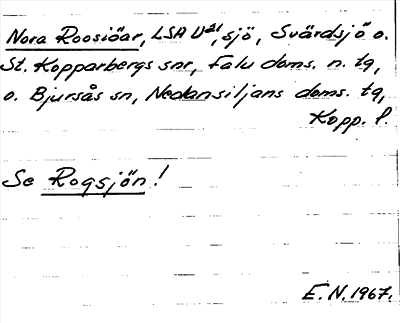 Nora Roosiöar, LSA U²¹, sjö, Svärdsjö o.
St. Kopparbergs snr, Falu doms. n. tg,
o. Bjursås sn, Nedansiljans doms. tg,
Kopp. l.
Se Rogsjön!
E. N. 1967.